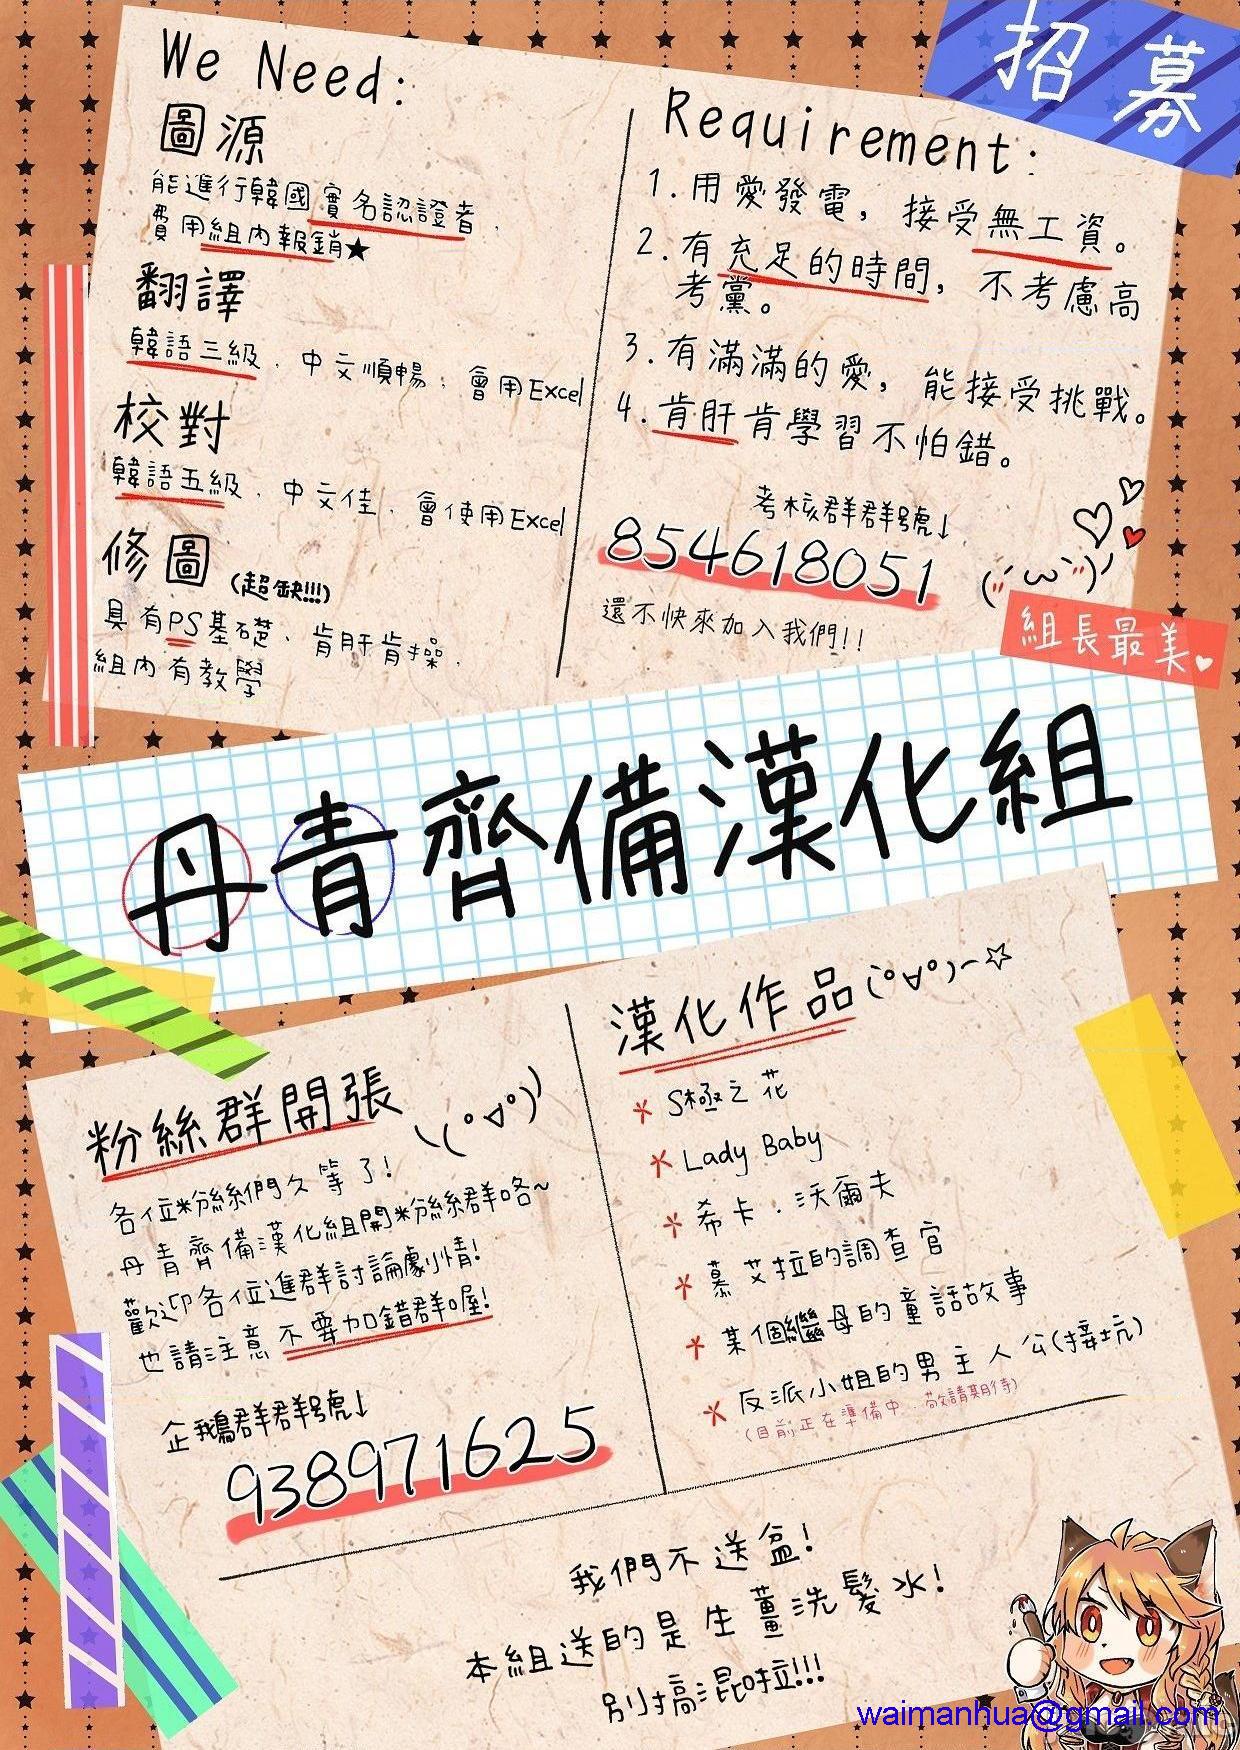 招募
We Need:
圖源
能進行韓國實名認證者、
費用組內報銷★
翻譯
韓語三級、中文順暢、會用Excel
校對
韓語五級、中文佳、會使用Excel
修圖(超缺!!!)
具有PS基礎、肯肝肯操、
組內有教學
Requirement:
1.用愛發電，接受無工資。
2.有充足的時間，不考慮高
考黨。
3.有滿滿的愛，能接受挑戰。
4.肯肝肯學習不怕錯。
考核群群號↓
854618051
還不快來加入我們!!
組長最美♥
丹青齊備漢化組
粉絲群開張
各位粉絲們久等了!
丹青齊備漢化組開粉絲群咯~
歡迎各位進群討論劇情!
也請注意不要加錯群喔!
企鵝群群號↓
938971625
漢化作品
S極之花
Lady Baby
希卡·沃爾夫
慕艾拉的調查官
某個繼母的童話故事
反派小姐的男主人公(接坑)
(目前正在準備中、敬請期待)
我們不送盆!
本組送的是生薑洗髮水!
別搞混啦!!!
waimanhua@gmail.com